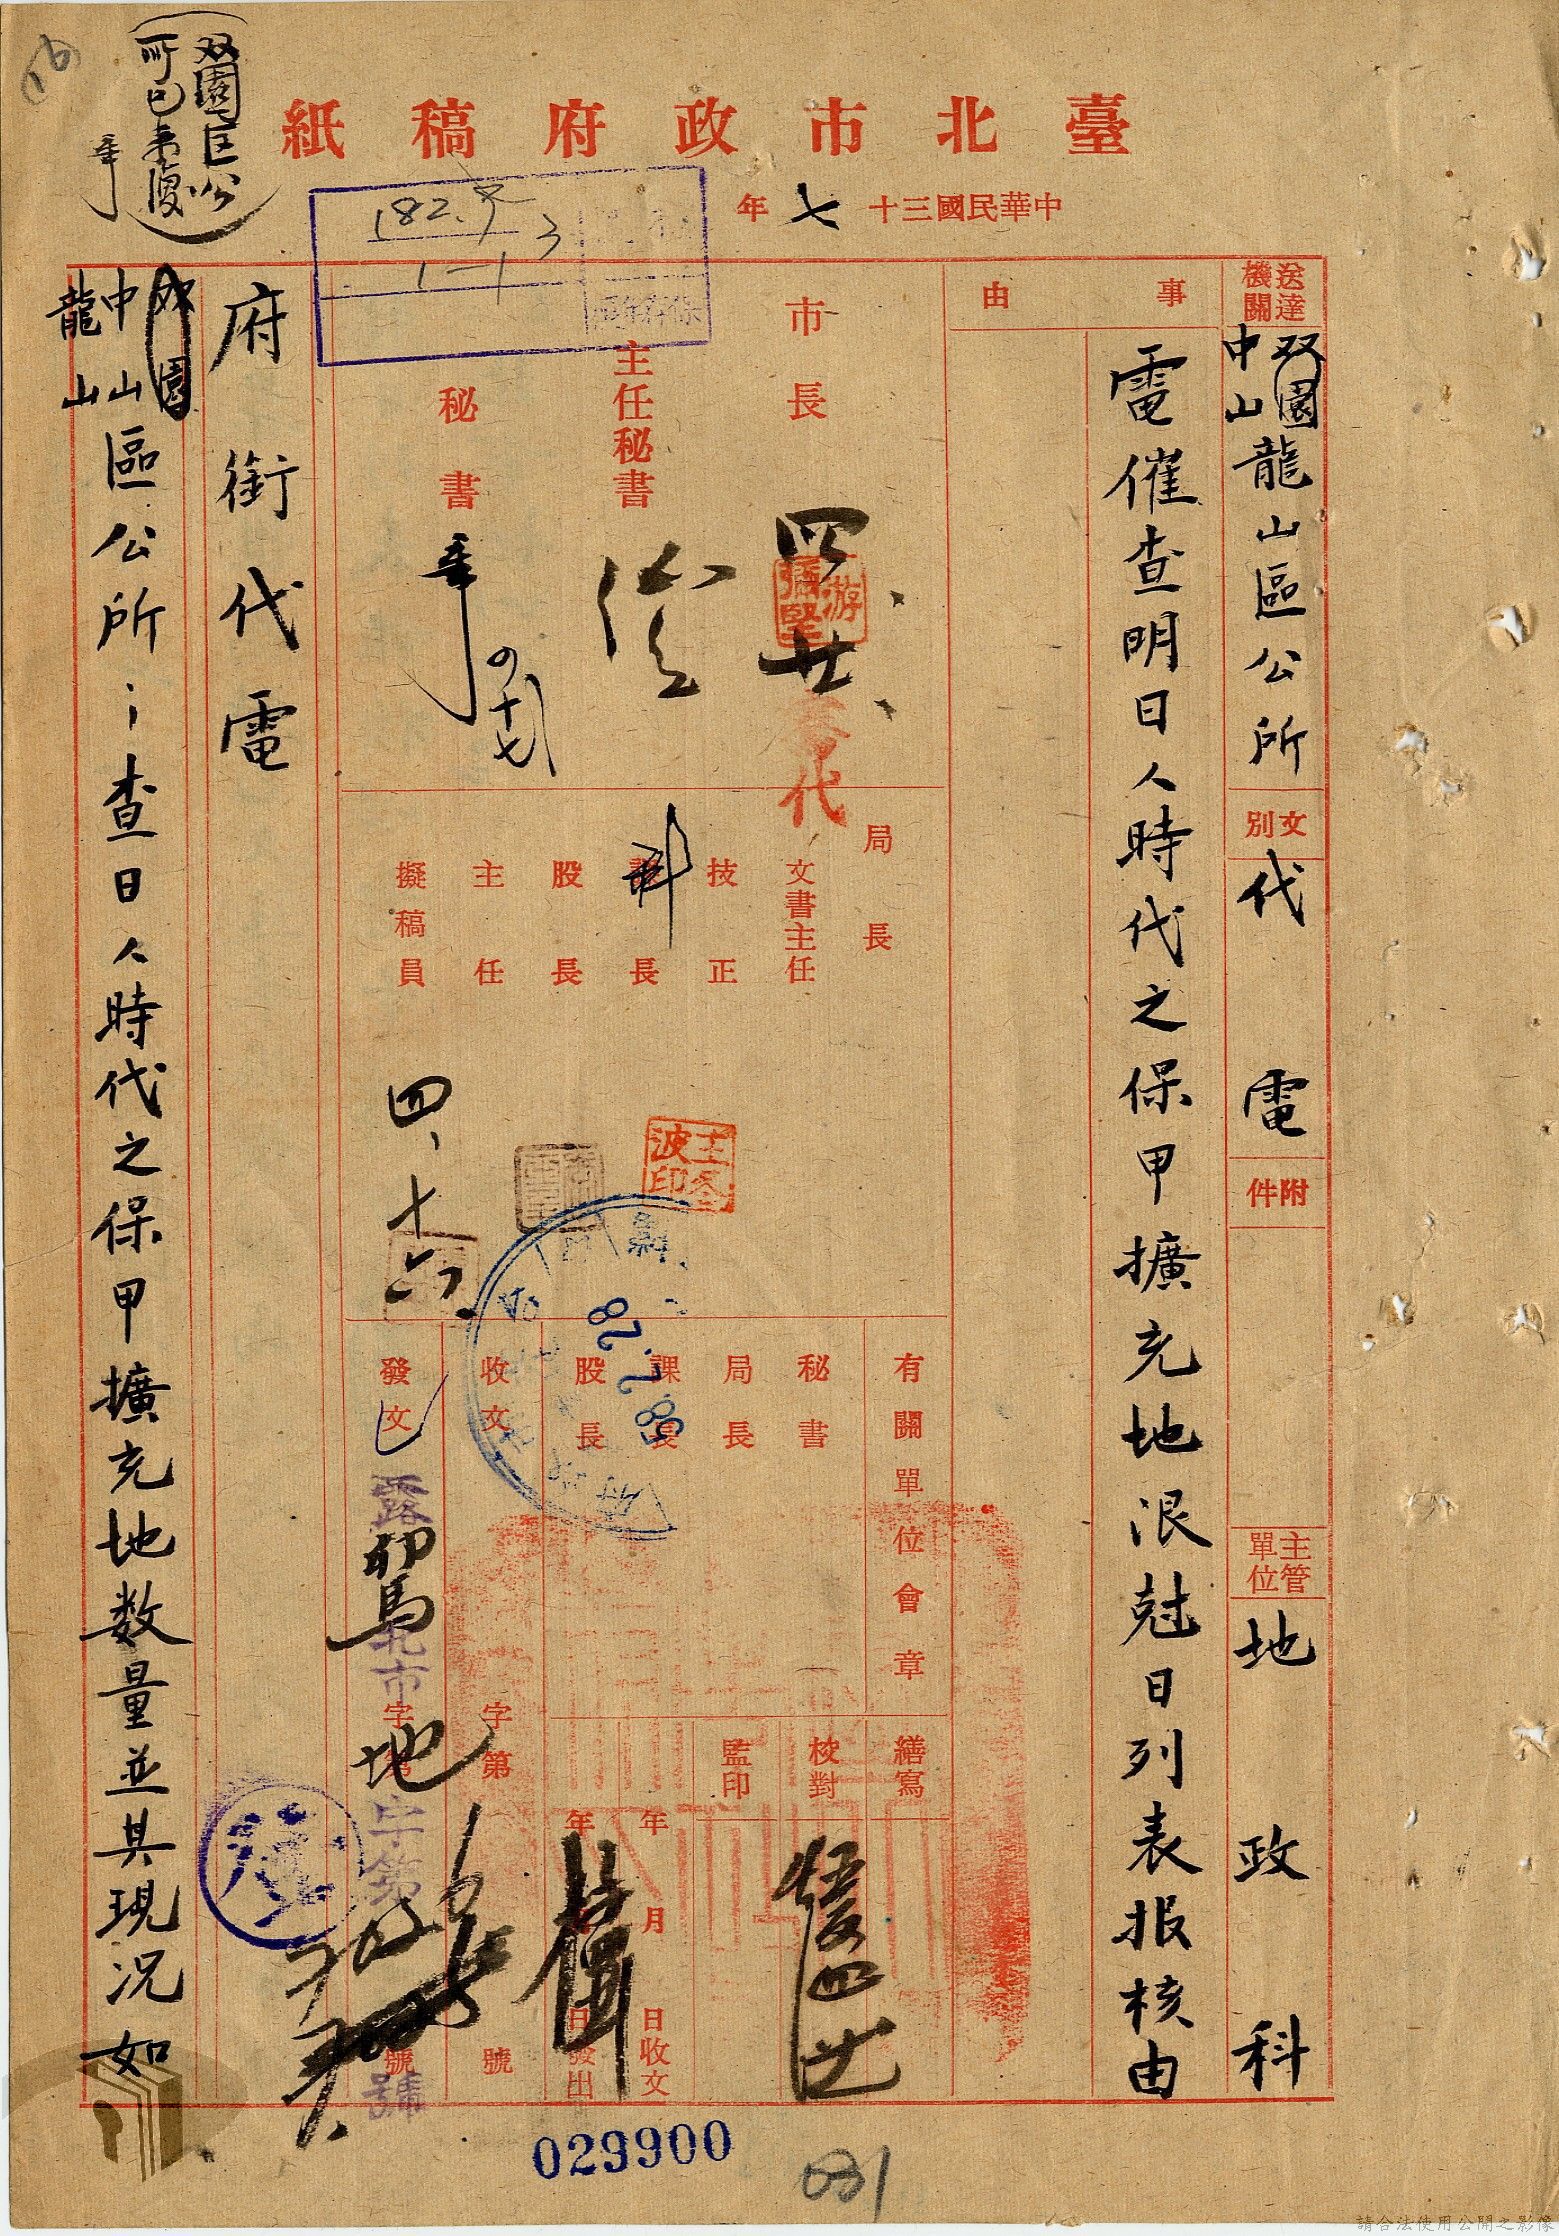 臺北市政府稿紙
中華民國三十七年
双園區公
所已来復
送達機關
双園
中山
龍山區公所
文別
代電
附件
主管單位
地政科
事由
電催查明日人時代之保甲擴充地限尅日列表報核由
市長
四、廿、
游彌堅
代
主任秘書
秘書
局長
文書主任
技正
長
股長
主任
擬稿員
四、十六、
有關單位會章
秘書
局長
課長
股長
收文
字第
號
發文
北市
字第
號
58.2.28
繕寫
校對
監印
年月日收文
年月日發出
182.7
1-13
府銜代電
双園
中山
龍山
區公所:查日人時代之保甲擴充地数量並其現況如
029900
031
請合法使用公開之影像